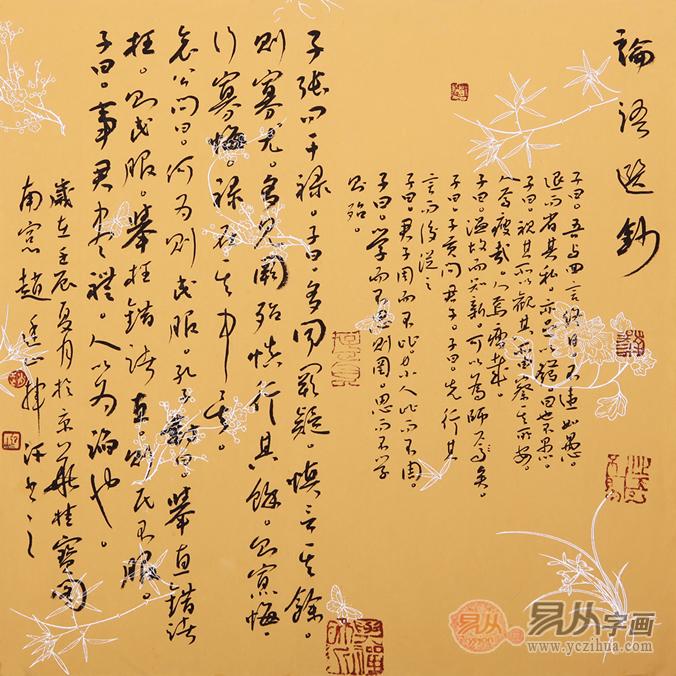 論語選鈔
子曰。吾与回言終日。不違如愚。
退而省其私。亦足以發。回也不愚。
子曰。視其所以觀其所由察其所安。
人焉廋哉。人焉廋哉。
子曰。温故而知新。可以為師矣。
子曰。子貢问君子。子曰。先行其
言而後從之
子曰。君子周而不比。小人比而不周。
子曰。学而不思則罔。思而不学
則殆。
子張问干禄。子曰。多闻闕疑。慎言其餘。
則寡尤。多見闕殆。慎行其餘。則寡悔。
行寡悔。禄在其中矣。
哀公问曰。何为則民服。孔子對曰。舉直錯诸
枉。則民服。舉枉錯诸直。則民不服。
子曰。事君尽禮。人以为諂也。
歲在壬辰夏月於京華桂寶閣
南窓趙 揮汗书之
易从字画
www.yczihua.com